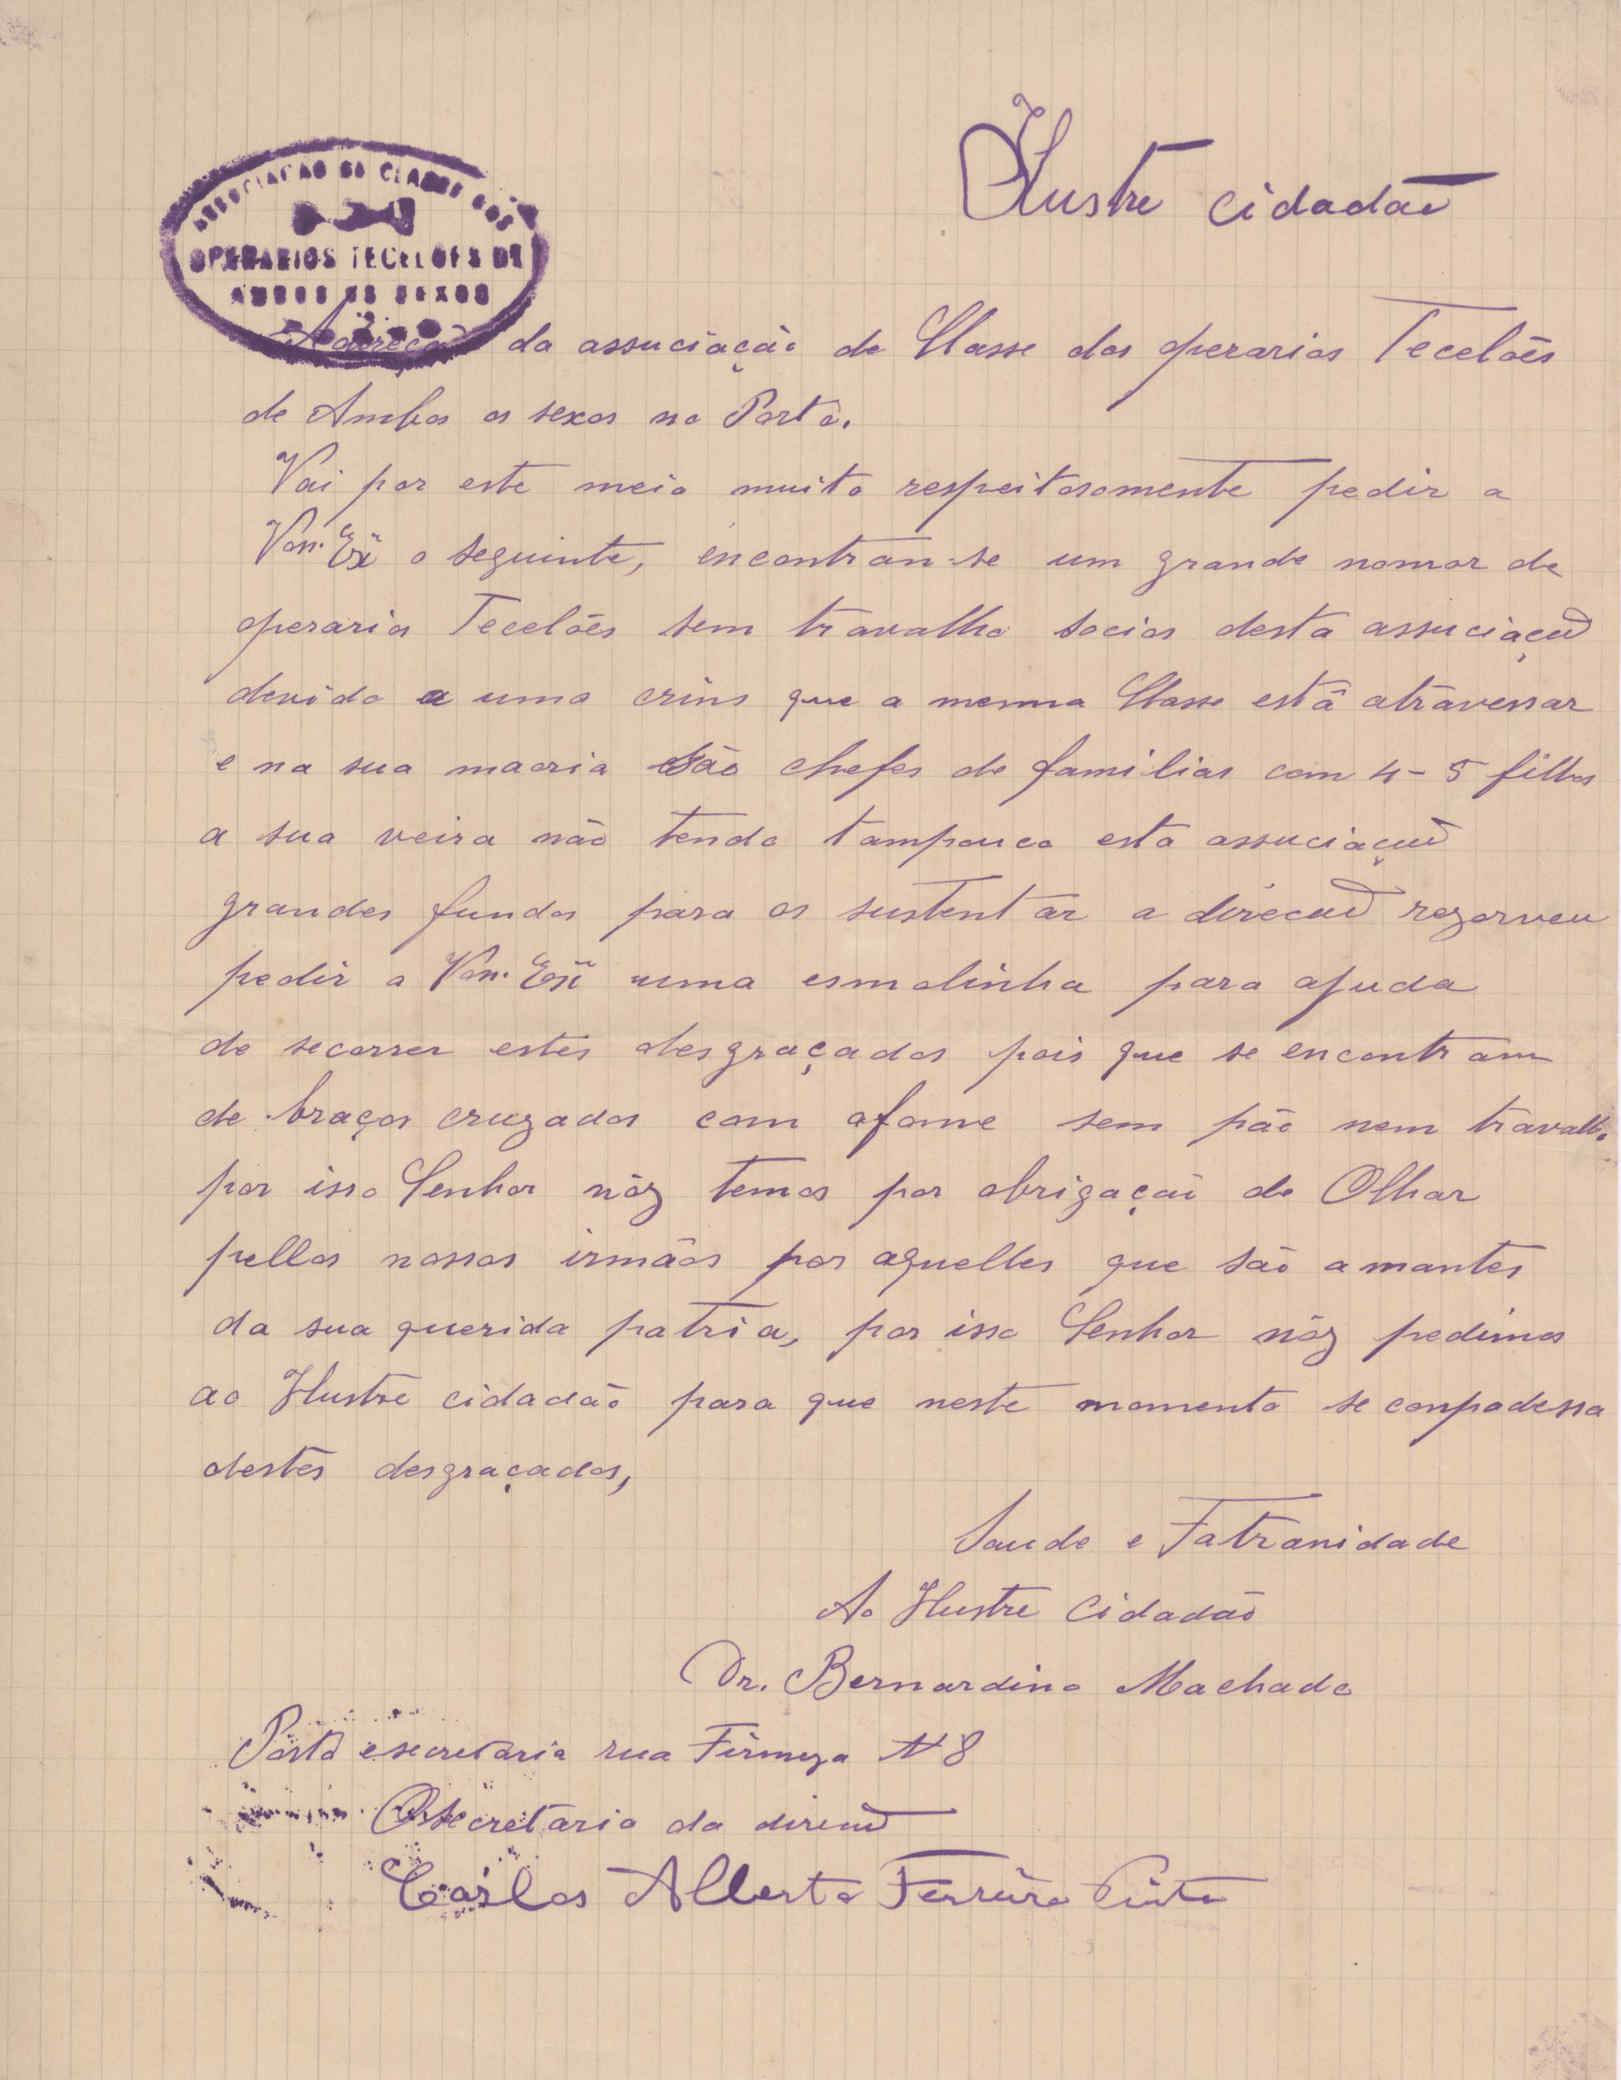 Illustre cidadão
ASSOCIAÇÃO DE CLASSE DOS
OPERARIOS TECELÕES DE
AMBOS OS SEXOS
A direção da assuciação de Classe dos operarios Tecelões
de Ambos os sexos no Porto.
Vai por este meio muito respeitosomente pedir a
Vos. Exª o seguinte, encontran-se um grande nomor de
operarios Tecelões sem travalho socios desta assuciação
devido a uma crins que a mesma Classe está atravessar
e na sua maoria são chefes de familias com 4-5 filhos
a sua veira não tendo tampouco esta assuciação
grandes fundos para os sustentar a direcão rezorveu
pedir a Vos. Exª uma esmolinha para ajuda
de secorrer estes desgraçados pois que se encontram
de braços cruzados com afome sem pão nem travalho
por isso Senhor nóz temos por obrigação de Olhar
pellos nossos irmãos por aquelles que são amantes
da sua querida patria, por isso Senhor nóz pedimos
ao Ilustre cidadão para que neste momento se conpadessa
destes desgraçados,
Saude e Fatranidade
Ao Ilustre Cidadão
Dr. Bernardino Machado
Porto esecretaria rua Firmeza Nº 8
Osecretario da direcão
Carlos Alberto Ferreira Pinto